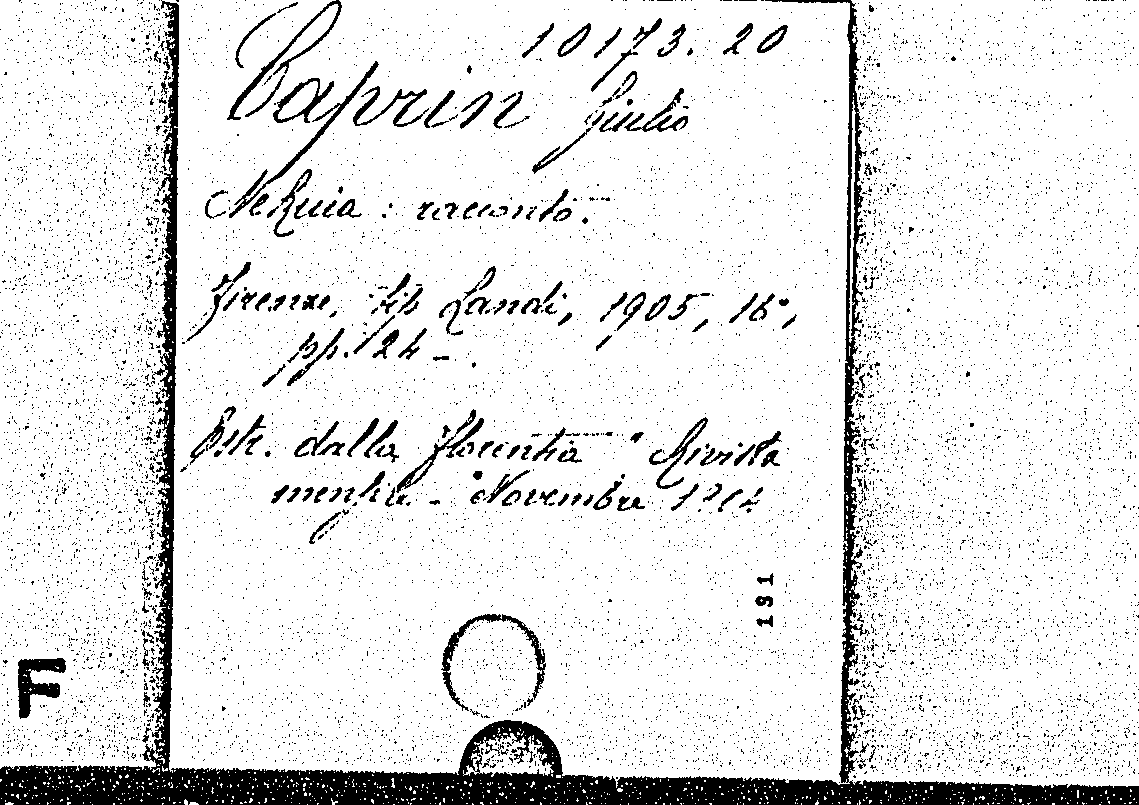 10173. 20
Caprin Giulio
Nekuia : racconto.
Firenze, tip Landi, 1905, 16°,
pp. 24 - .
Estr. dalla Florentia " Rivista
mensile - Novembre
191
F